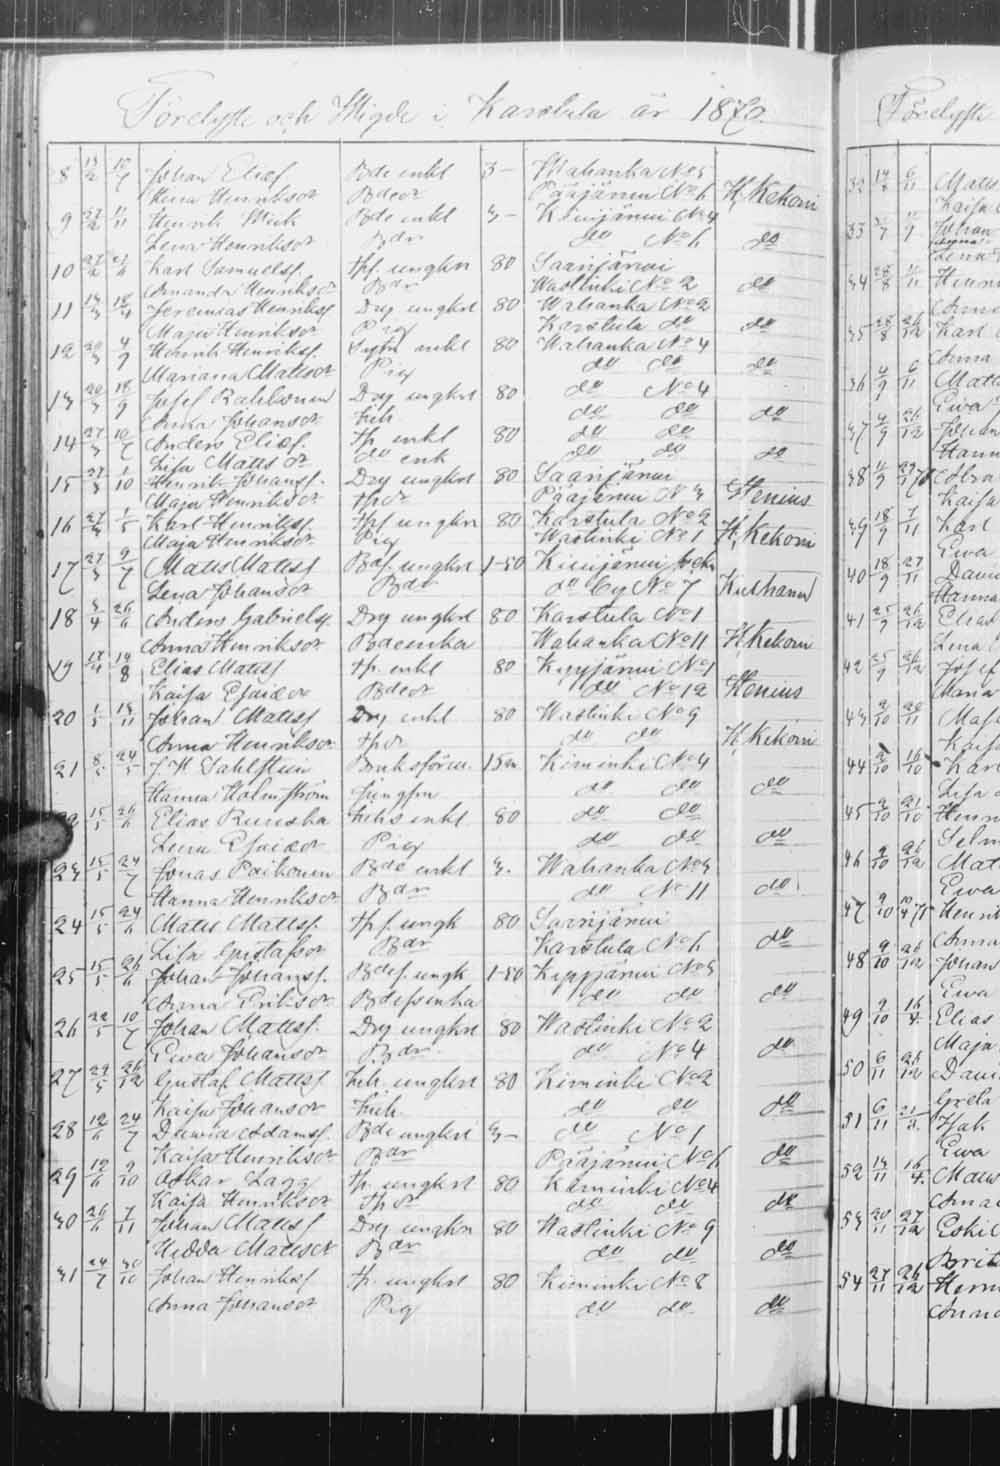 Förelyste och Wigde i Karstula år 1870.
8 13/2 10/7 Johan Eliaf Bde enkl 3- Wahanka No 5
Lena Henriksdr Bdedr Pääjärvi No 6 H. Kekoni
9 27/2 11/11 Henrik Mich Bde enkl 3- Kimijärvi No 4
Lena Henriksdr Bdr do No 6 do
10 27/2 21/6 Karl Samuelsf. Tpf. ungkn 80 Saarijärvi
Amanda Henriksdr Bdr Wastinki No 2 do
11 13/3 18/4 Jeremias Henriksf Drg ungkrl 80 Wahanka No 2
Maja Henriksdr Pig Karstula do do
12 20/3 4/9 Henrik Henriksf. enkl 80 Wahanka No 4
Mariana Mattsdr Pig do do do
13 20/3 18/9 Josef Rahkonen Drg ungkrl 80 do No 4
Anna Johansdr Inh do do do
14 27/3 10/7 Anders Eliaf. Tp. enkl 80 do do
Lisa Mattsdr do enk do do do
15 27/3 1/10 Henrik Johansf. Drg ungkrl 80 Saarijärvi
Maja Henriksdr Tpdr Pääjärvi No 3 Stenius
16 27/3 1/5 Karl Henriksf. Tpf ungkn 80 Karstula No 2
Maja Henriksdr Pig Wastinki No 1 H. Kekoni
17 27/3 9/7 Matts Mattsf Bdf. ungkrl 1-50 Kivijärvi
Lena Johansdr Bdr do By No 7
18 3/4 26/6 Anders Gabrielsf. Drg ungkrl 80 Karstula No 1
Anna Henriksdr Bdeenka Wahanka No 11 H. Kekoni
19 17/4 14/8 Elias Mattsf Tp. enkl 80 Kyyjärvi No 1
Kaisa Esaiedr Bdedr do No 12 Stenius
20 1/5 13/11 Johan Mattsf Drg enkl 80 Wastinki No 9
Anna Henriksdr Tpdr do do H. Kekoni
21 8/5 24/5 J. H. Dahlstein Bruksförv. 15 Kiminki No 4
Hanna Holmström Jungfru do do do
22 15/5 26/6 Elias Ruuska Inhs enkl 80 do do
Lena Esaiedr Pig do do do
23 15/5 24/7 Jonas Poikonen Bde enkl 3. Wahanka No 3
Hanna Henriksdr Bdr do No 11 do
24 15/5 24/6 Matts Mattsf. Tpf. ungk 80 Saarijärvi
Lisa Gustafsdr Bdr Karstula No 6 do
25 15/5 26/6 Johan Johansf. Bdef. ungk 1-50 Kyyjärvi No 5
Anna Eriksdr Bdefsenka do do do
26 22/5 10/7 Johan Mattsf. Drg ungkrl 80 Wastinki No 2
Ewa Johansdr Bdr do No 4 do
27 29/5 26/12 Gustaf Mattsf Inh. ungkrl 80 Kiminki No 2
Kaisa Johansdr Inh. do do do
28 12/6 24/7 Dawid Adamsf. Bde ungkrl 3- do No 1
Kaisa Henriksdr Bdr Pääjärvi No 6 do
29 12/6 9/10 Oskar Lagg Tp. ungkrl 80 Kiminki No 4
Kaisa Henriksdr Tpdr do do do
30 26/6 7/11 Johan Mattsf Drg ungkn 80 Wastinki No 9
Hedda Mattsdr Bdr do do do
31 24/7 30/10 Johan Henriksf Tp. ungkrl 80 Kiminki No 8
Anna Johansdr Pig do do do
Förelyste
32 14/8 6/11 Matts
Kaisa
33 Johan
Lena
34 28/8 Henri
35 28/8 26/12 Karl
Anna
36 4/9 6/11 Matts
Ewa
37 4/9 26/12 Johan
Hanna
38
Kaisa
39 18/9 7/11 Karl
Ewa
40 18/9 27/11 Dawid
Hanna
41 25/9 26/12 Elias
Lena
42 25/9 26/12 Josef
Maria
43 2/10 20/11
Kaisa
44 2/10 16/10 Karl
Lisa
45 9/10 Henri
Selm
46 9/10 26/12 Matt
Ewa
47 9/10 Henrik
Anna
48 9/10 26/12 Johan
Ewa
49 9/10 16/4 Elias
Maja
50 6/11 26/12 Dawi
Greta
51 6/11 Isak
Ewa
52 13/11 16/4 Matts
Anna
53 20/11 27/12 Eskil
Brita
54 27/11 26/12 Henri
Anna